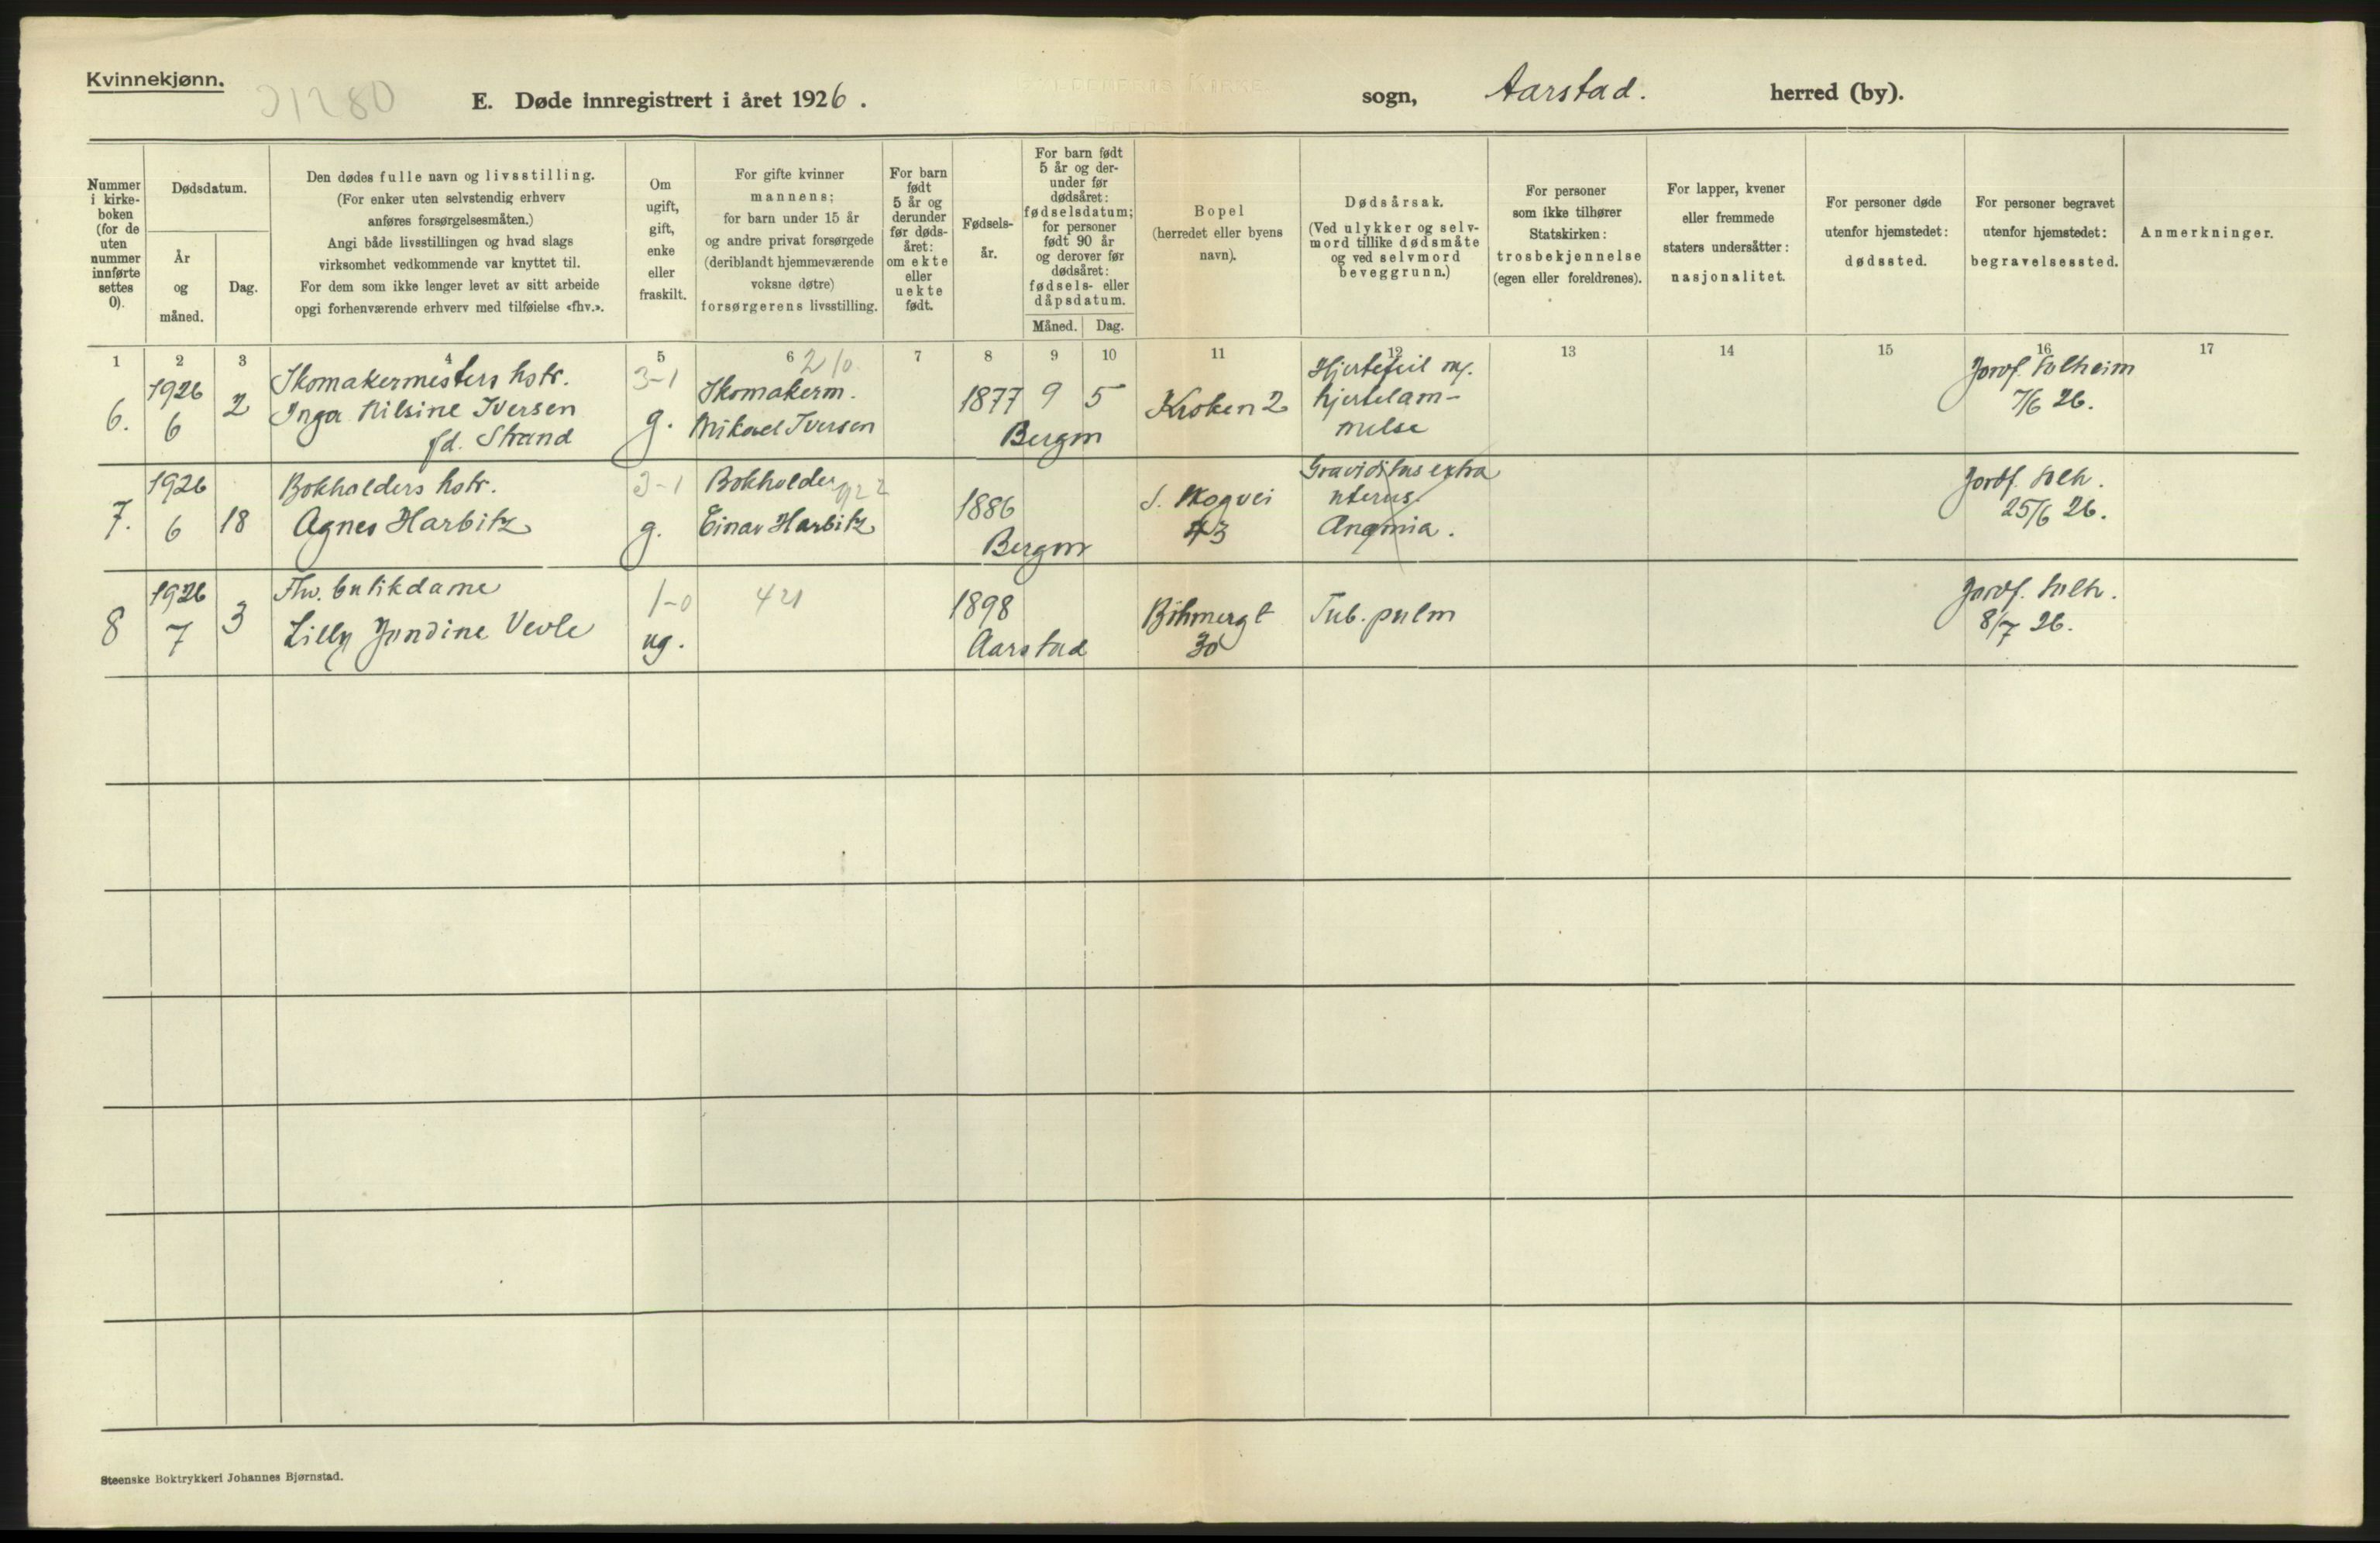 Kvinnekjønn.
E. Døde innregistrert i året 1926.
sogn, Aarstad. herred (by).
Nummer i kirke-boken (for de uten nummer innførte settes 0).
Dødsdatum.
År og måned.
Dag.
Den dødes fulle navn og livsstilling.
(For enker uten selvstendig erhverv
anføres forsørgelsesmåten.)
Angi både livsstillingen og hvad slags
virksomhet vedkommende var knyttet til.
For dem som ikke lenger levet av sitt arbeide
opgi forhenværende erhverv med tilføielse «fhv.».
Om
ugift,
gift,
enke
eller
fraskilt.
For gifte kvinner
mannens;
for barn under 15 år
og andre privat forsørgede
(deriblandt hjemmeværende
voksne døtre)
forsørgerens livsstilling.
For barn
født
5 år og
derunder
før døds-
året:
om ekte
eller
uekte
født.
Fødsels-
år.
For barn født
5 år og der-
under før
dødsåret:
fødselsdatum;
for personer
født 90 år
og derover før
dødsåret:
fødsels- eller
dåpsdatum.
Måned. Dag.
Bopel
(herredet eller byens
navn).
Dødsårsak.
(Ved ulykker og selv-
mord tillike dødsmåte
og ved selvmord
beveggrunn.)
For personer
som ikke tilhører
Statskirken:
trosbekjennelse
(egen eller foreldrenes).
For lapper, kvener
eller fremmede
staters undersåtter:
nasjonalitet.
For personer døde
utenfor hjemstedet:
dødssted.
For personer begravet
utenfor hjemstedet:
begravelsessted.
Anmerkninger.
1 2 3 4 5 6 7 8 9 10 11 12 13 14 15 16 17
6.
1926
6
2
Skomakermesters hstr.
Inga Nilsine Iversen
fd. Strand
3-1
g.
210
Skomakerm.
Mikael Iversen
1877 9 5
Bergen
Kroken 2
Hjertefeil m/.
hjertelam-
melse
Jordf. Solheim
7/6 26.
7.
1926
6
18
Bokholders hstr.
Agnes Harbitz
3-1
g.
Bokholder
Einar Harbitz
1886
Bergen
S. Skogvei
43
Graviditas extra
uterus.
Anæmia.
Jordf. Solh.
25/6 26.
8
1926
7
3
Fhv. butikdame
Lilly Jondine Vevle
1-0
ug.
421
1898
Aarstad
Bøhmergt
30
Tub. pulm
Jordf. Solh.
8/7 26.
Steenske Boktrykkeri Johannes Bjørnstad.